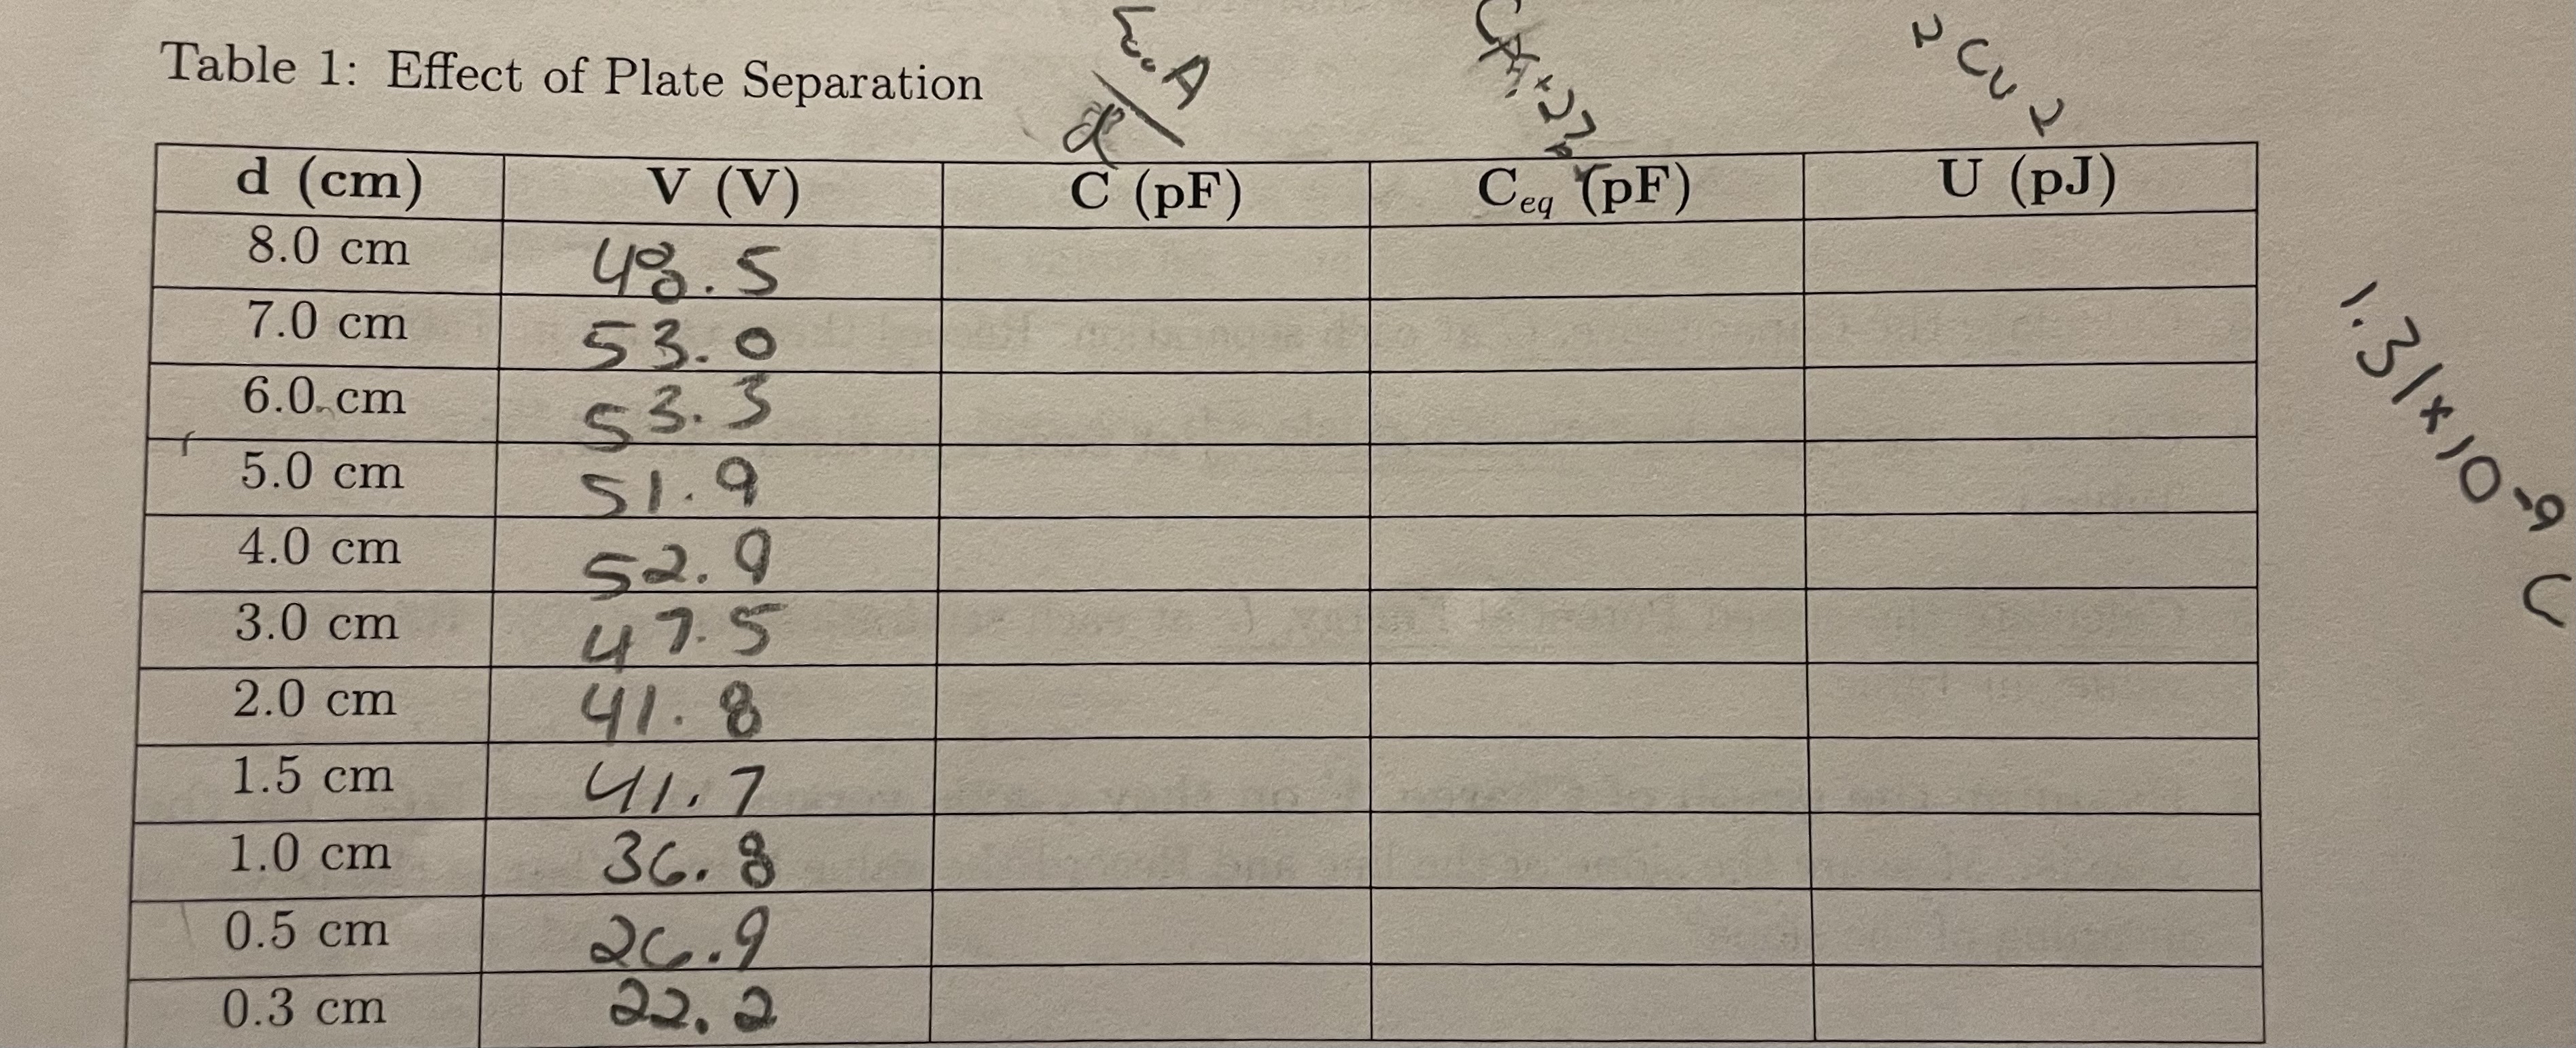 Table 1: Effect of Plate Separation
ε₀A/d
+27
2 CV 2
d (cm) V (V) C (pF) Ceq (pF) U (pJ)
8.0 cm 48.5
7.0 cm 53.0
6.0 cm 53.3
5.0 cm 51.9
4.0 cm 52.9
3.0 cm 47.5
2.0 cm 41.8
1.5 cm 41.7
1.0 cm 36.8
0.5 cm 26.9
0.3 cm 22.2
1.31×10-9 C